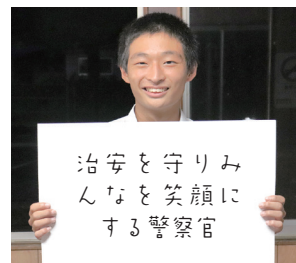 治安を守りみ
んなを笑顔に
する警察官